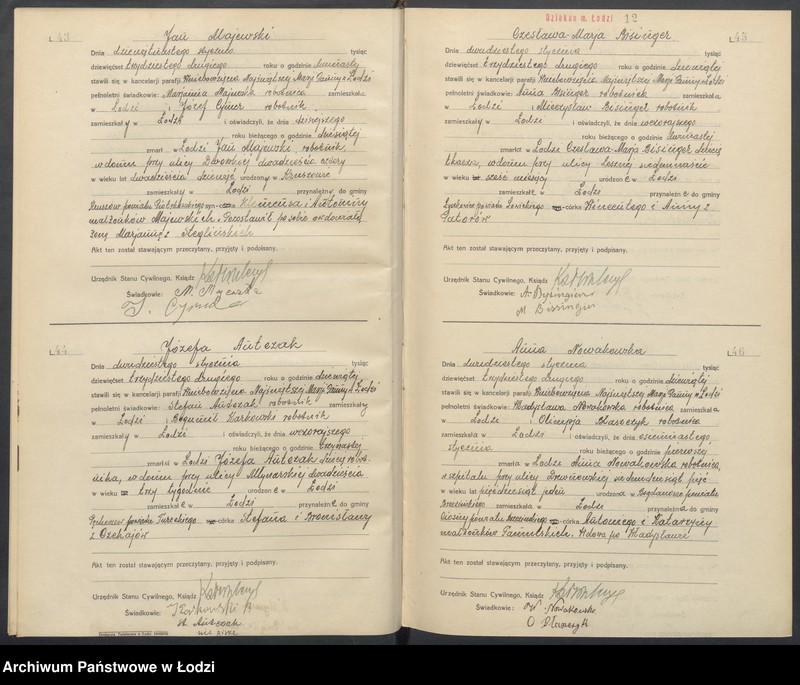 43
Jan Majewski
Dnia dziewiętnastego stycznia tysiąc
dziewięćset trzydziestego drugiego roku o godzinie
stawili się w kancelarji parafji Wniebowzięcia Najświętszej Marji Panny w Łodzi
pełnoletni świadkowie: Marjanna Majewska robotnica zamieszkała
w Łodzi i Józef robotnik
zamieszkały w Łodzi i oświadczyli, że dnia dzisiejszego
roku bieżącego o godzinie dziesiątej
zmarł w Łodzi Jan Majewski, robotnik,
w domu przy ulicy Dworskiej dwadzieścia cztery
w wieku lat dwadzieścia dziewięć urodzony w
zamieszkały w Łodzi przynależny do gminy
powiatu Piotrkowskiego syn i Antoniny
małżonków Majewskich. Pozostawił po sobie owdowiałą
żonę Marjannę z
Akt ten został stawającym przeczytany, przyjęty i podpisany.
Urzędnik Stanu Cywilnego, Ksiądz
Świadkowie: M.
J.
44
Józefa Antczak
Dnia dwudziestego stycznia tysiąc
dziewięćset trzydziestego drugiego roku o godzinie dziewiątej
stawili się w kancelarji parafji Wniebowzięcia Najświętszej Marji Panny w Łodzi
pełnoletni świadkowie: Stefan Antczak robotnik zamieszkały
w Łodzi i Bogumił Żarkowski robotnik
zamieszkały w Łodzi i oświadczyli, że dnia wczorajszego
roku bieżącego o godzinie trzynastej
zmarła w Łodzi Józefa Antczak, dziecię robot-
nika, w domu przy ulicy Młynarskiej dwadzieścia
w wieku trzy tygodnie urodzone w Łodzi
zamieszkałe w Łodzi przynależne do gminy
powiatu Tureckiego córka Stefana i Bronisławy
z
Akt ten został stawającym przeczytany, przyjęty i podpisany.
Urzędnik Stanu Cywilnego, Ksiądz
Świadkowie:
Dziekan m. Łodzi 12
45
Czesława-Marja Bisinger
Dnia dwudziestego stycznia tysiąc
dziewięćset trzydziestego drugiego roku o godzinie dziewiątej
stawili się w kancelarji parafji Wniebowzięcia Najświętszej Marji Panny w Łodzi
pełnoletni świadkowie: Anna Bisinger zamieszkała
w Łodzi i Mieczysław Bisinger robotnik
zamieszkały w Łodzi i oświadczyli, że dnia wczorajszego
roku bieżącego o godzinie
zmarła w Łodzi Czesława-Marja Bisinger, dziecię
tkacza, w domu przy ulicy Leśnej siedemnaście
w wieku sześć miesięcy urodzone w Łodzi
zamieszkałe w Łodzi przynależne do gminy
powiatu córka Wincentego i Anny z
Gatorów
Akt ten został stawającym przeczytany, przyjęty i podpisany.
Urzędnik Stanu Cywilnego, Ksiądz
Świadkowie: A.
M. Bissinger
46
Anna Nowakowska
Dnia dwudziestego stycznia tysiąc
dziewięćset trzydziestego drugiego roku o godzinie dziewiątej
stawili się w kancelarji parafji Wniebowzięcia Najświętszej Marji Panny w Łodzi
pełnoletni świadkowie: Władysława Nowakowska robotnica zamieszkała
w Łodzi i Olimpja robotnica
zamieszkała w Łodzi i oświadczyli, że dnia osiemnastego
stycznia roku bieżącego o godzinie pierwszej
zmarła w Łodzi Anna Nowakowska robotnica,
w szpitalu przy ulicy Drewnowskiej siedemdziesiąt pięć
w wieku lat pięćdziesiąt jeden urodzona w Bogdanowie powiatu
Brzezińskiego zamieszkała w Łodzi przynależna do gminy
powiatu córka Antoniego i Katarzyny
małżonków. Wdowa po Władysławie
Akt ten został stawającym przeczytany, przyjęty i podpisany.
Urzędnik Stanu Cywilnego, Ksiądz
Świadkowie: W. Nowakowska
O
Archiwum Państwowe w Łodzi